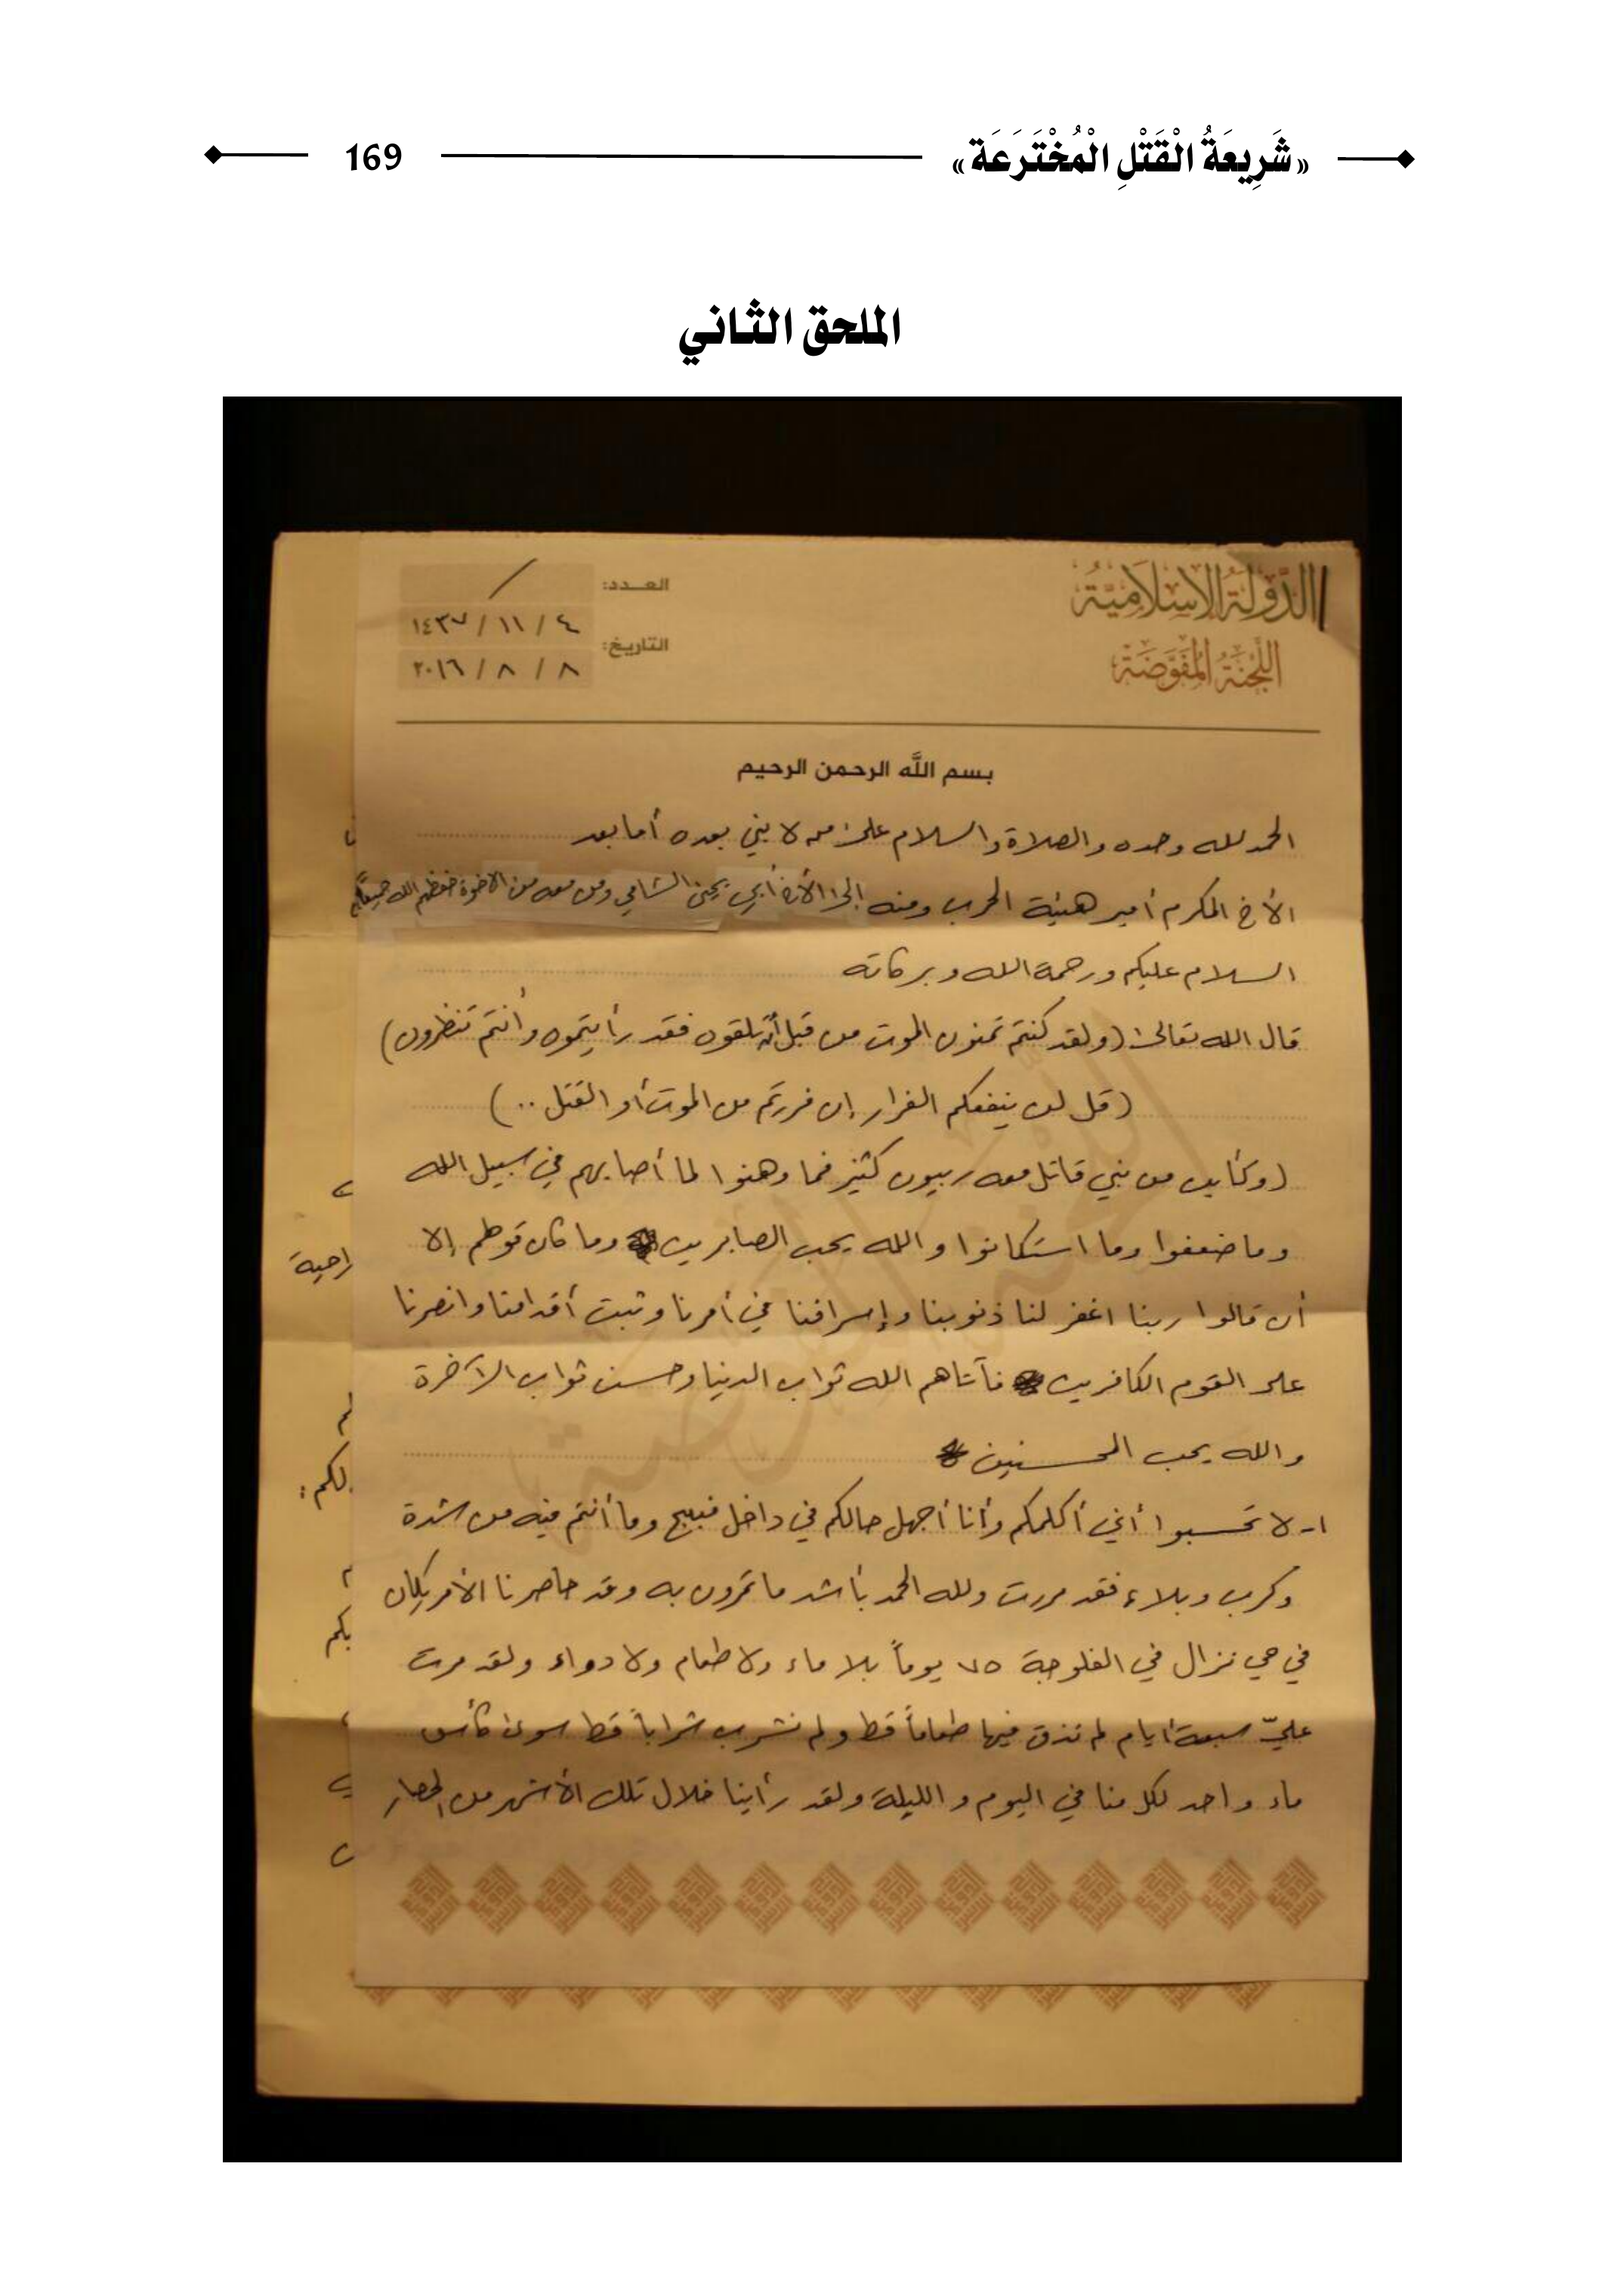 «شَرِيعَةُ الْقَتْلِ الْمُخْتَرَعَة» 169
الملحق الثاني
الدولة الإسلامية
اللجنة المفوضة
العدد: /
التاريخ: ٤ / ١١ / ١٤٣٧
٨ / ٨ / ٢٠١٦
بسم الله الرحمن الرحيم
الحمد لله وحده والصلاة والسلام على من لا نبي بعده أما بعد
الأخ المكرم أمير هيئة الحرب ومنه إلى الأخ أبي يحيى الشامي ومن معه من الاخوة حفظهم الله جميعاً
السلام عليكم ورحمة الله وبركاته
قال الله تعالى: (ولقد كنتم تمنون الموت من قبل أن تلقوه فقد رأيتموه وأنتم تنظرون)
(قل لن ينفعكم الفرار إن فررتم من الموت أو القتل ..)
(وكأين من نبي قاتل معه ربيون كثير فما وهنوا لما أصابهم في سبيل الله
وما ضعفوا وما استكانوا والله يحب الصابرين وما كان قولهم إلا
أن قالوا ربنا اغفر لنا ذنوبنا وإسرافنا في أمرنا وثبت أقدامنا وانصرنا
على القوم الكافرين فآتاهم الله ثواب الدنيا وحسن ثواب الآخرة
والله يحب المحسنين
١- لا تحسبوا أني أكلمكم وأنا أجهل حالكم في داخل منبج وما أنتم فيه من شدة
وكرب وبلاء فقد مررت ولله الحمد بأشد ما تمرون به وقد حاصرنا الأمريكان
في حي نزال في الفلوجة ٧٥ يوماً بلا ماء ولا طعام ولا دواء ولقد مرت
عليّ سبعة ايام لم نذق فيها طعاماً قط ولم نشرب شراباً قط سوى كأس
ماء واحد لكل منا في اليوم والليلة ولقد رأينا خلال تلك الأشهر من الحصار